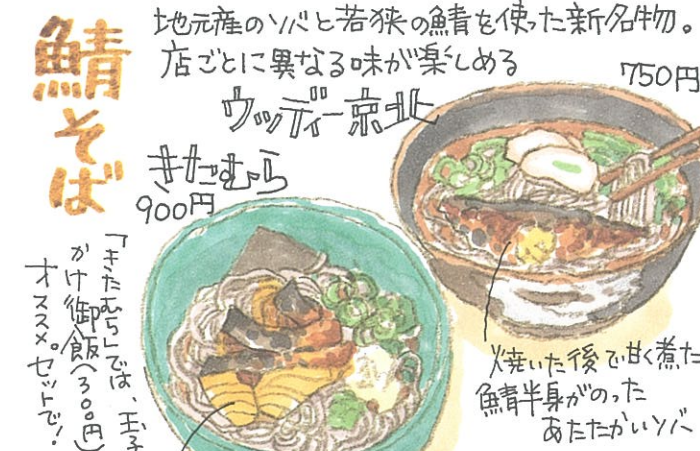 鯖そば
地元産のソバと若狭の鯖を使った新名物。
店ごとに異なる味が楽しめる
750円
ウッディー京北
きたむら
900円
「きたむら」では、玉子
かけ御飯(300円)
オススメ。セットで!
焼いた後で甘く煮た
鯖半身がのった
あたたかいソバ